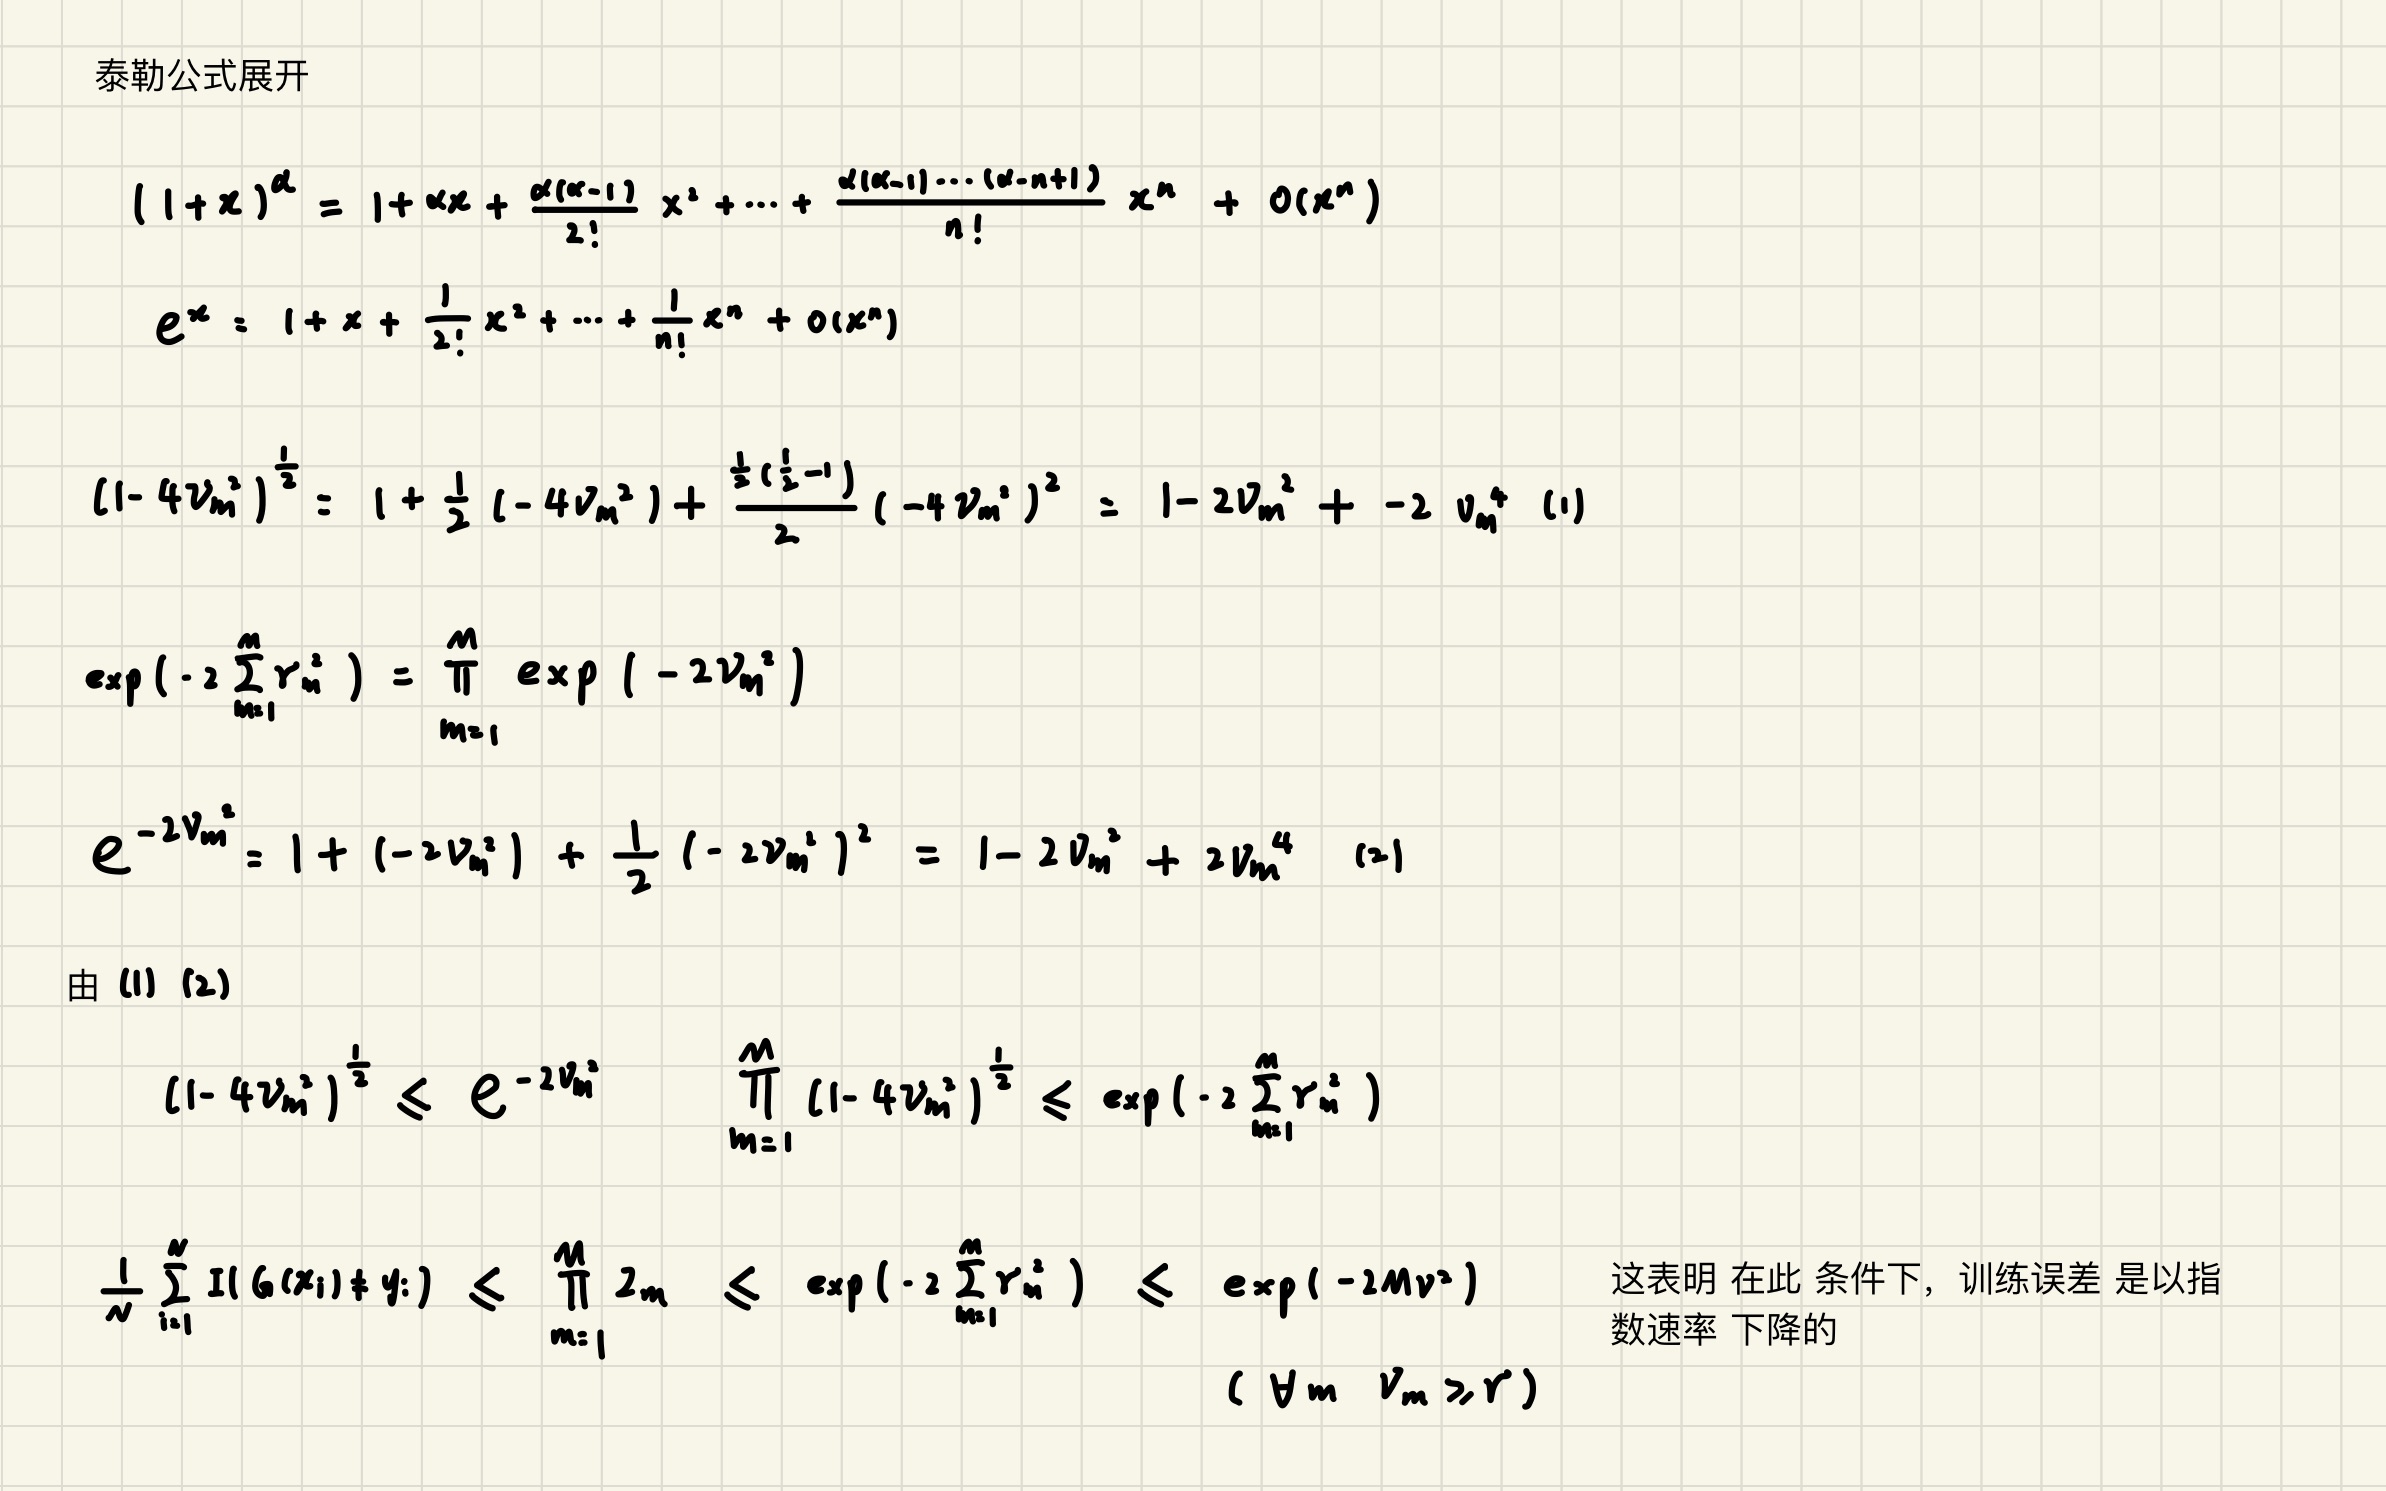 泰勒公式展开
(1+x)^α = 1+αx + \frac{α(α-1)}{2!} x² + ⋯ + \frac{α(α-1)⋯(α-n+1)}{n!} x^n + o(x^n)
e^x = 1+x+ \frac{1}{2!}x² + ⋯ + \frac{1}{n!}x^n + o(x^n)
(1-4γ_m²)^{\frac{1}{2}} = 1+\frac{1}{2}(-4γ_m²)+\frac{\frac{1}{2}(\frac{1}{2}-1)}{2}(-4γ_m²)² = 1-2γ_m² + -2γ_m⁴ (1)
exp(-2\sum_{m=1}^{M}γ_m²) = \prod_{m=1}^{M} exp(-2γ_m²)
e^{-2γ_m²} = 1+(-2γ_m²) + \frac{1}{2}(-2γ_m²)² = 1-2γ_m² + 2γ_m⁴ (2)
由 (1) (2)
(1-4γ_m²)^{\frac{1}{2}} ≤ e^{-2γ_m²} \prod_{m=1}^{M}(1-4γ_m²)^{\frac{1}{2}} ≤ exp(-2\sum_{m=1}^{M}γ_m²)
\frac{1}{N}\sum_{i=1}^{N} I(G(x_i)≠y_i) ≤ \prod_{m=1}^{M} Z_m ≤ exp(-2\sum_{m=1}^{M}γ_m²) ≤ exp(-2Mγ²) 这表明 在此 条件下，训练误差 是以指
数速率 下降的
(∀m γ_m ≥ γ)